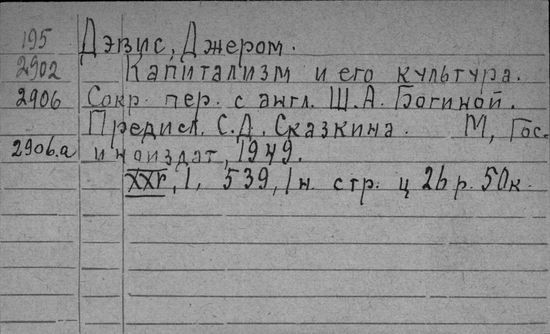 195 Дэвис, Джером.
2902 Капитализм и его культура.
2906 Сокр. пер. с англ. Ш.А. Богиной.
Предисл. С.Д. Сказкина. М, Гос.
2906.а иноиздат, 1949.
XXV, 1, 539, 1 н. стр. ц 26 р. 50 к.